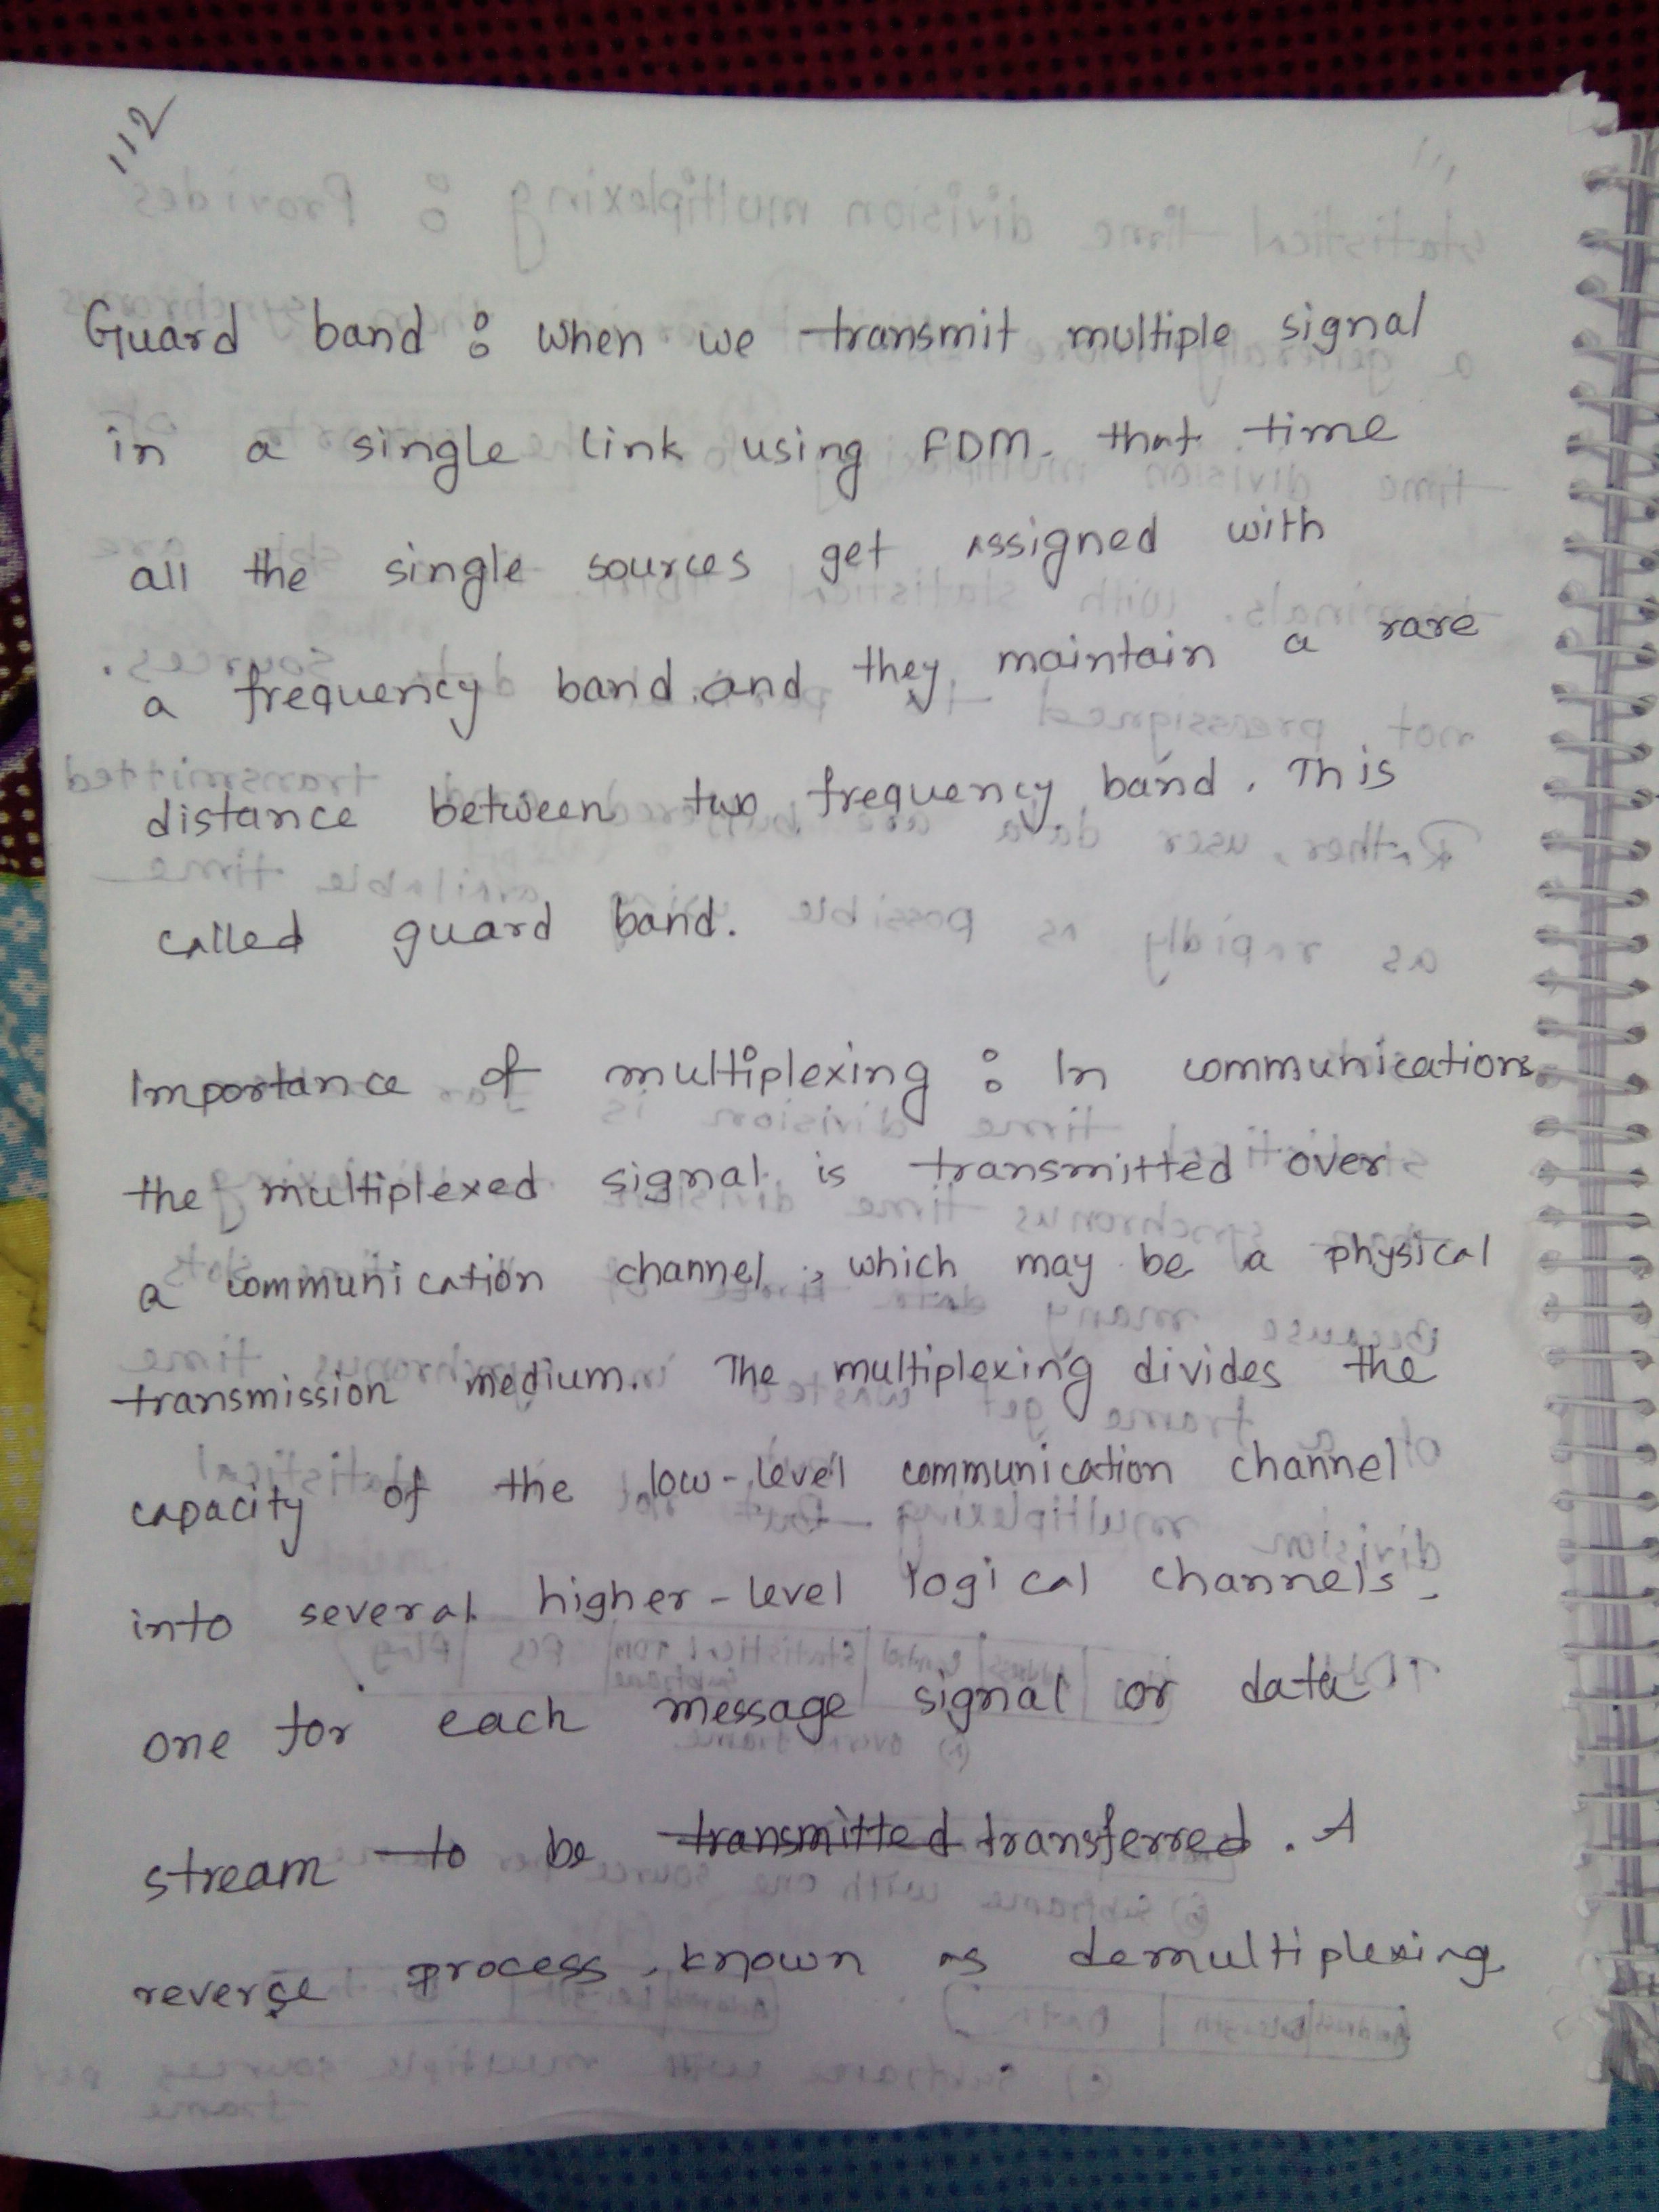 112
Guard band : when we transmit multiple signal
in a single link using FDM. that time
all the single sources get assigned with
a frequency band and they maintain a rare
distance between two frequency band. This
called guard band.
Importance of multiplexing : In communications
the multiplexed signal is transmitted over
a communication channel, which may be a physical
transmission medium. The multiplexing divides the
capacity of the low-level communication channel
into several higher-level logical channels.
one for each message signal or data
stream to be transmitted transferred. A
reverse process, known as demultiplexing